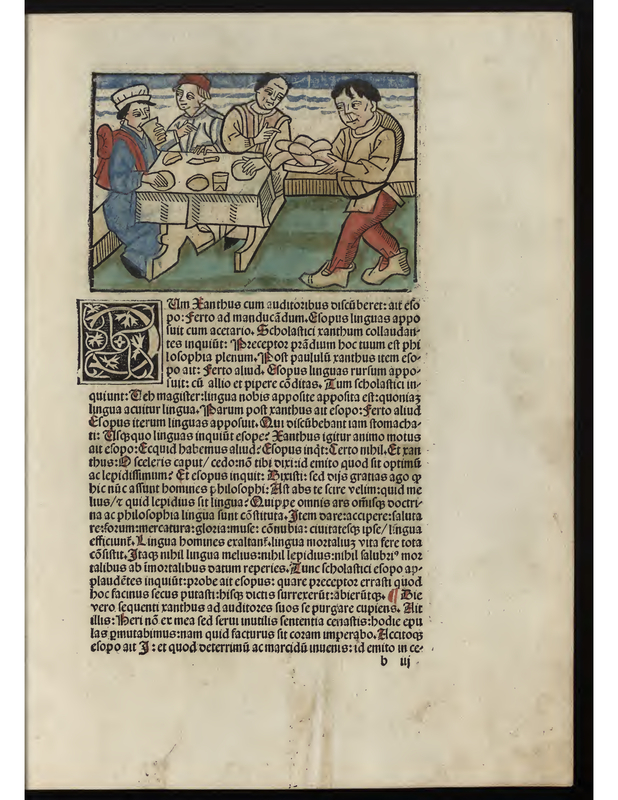 Um Xanthus cum auditoribus discūberet: ait eso
po: Ferto ad manducādum. Esopus linguas appo
suit cum acetario. Scholastici xanthum collaudan-
tes inquiūt: Preceptor prādium hoc tuum est phi
losophia plenum. Post paululū xanthus item eso-
po ait: ferto aliud. Esopus linguas rursum appo-
suit: cū allio et pipere cōditas. Tum scholastici in-
quiunt: Veh magister: lingua nobis apposite apposita est: quoniaʒ
lingua acuitur lingua. Parum post xanthus ait esopo: Ferto aliud
Esopus iterum linguas apposuit. Qui discūbebant iam stomacha-
ti: Usqꝫquo linguas inquiūt esope? Xanthus igitur animo motus
ait esopo: Ecquid habemus aliud? Esopus inqͥt: Certo nihil. Et xan
thus: O sceleris caput/ cedo: nō tibi dixi: id emito quod sit optimū
ac lepidissimum? Et esopus inquit: Dixisti: sed dijs gratias ago ꝙ
hic nūc assunt homines philosophi: Ast abs te scire velim: quid me
lius/ ⁊ quid lepidius sit lingua? Quippe omnis ars omīsqꝫ doctri-
na ac philosophia lingua sunt cōstituta. Item dare: accipere: saluta
re: forum: mercatura: gloria: muse: cōnubia: ciuitatesqꝫ ipse/ lingua
efficiunt̄. Lingua homines exaltant̄. lingua mortaliuʒ vita fere tota
cōsistit. Itaqꝫ nihil lingua melius: nihil lepidius: nihil salubriꝰ mor
talibus ab īmortalibus datum reperies. Tunc scholastici esopo ap-
plaudētes inquiūt: probe ait esopus: quare preceptor errasti quod
hoc facinus secus putasti: hisqꝫ dictis surrexerūt: abierūtqꝫ. ¶ Die
vero sequenti xanthus ad auditores suos se purgare cupiens. Ait
illis: Heri nō ex mea sed serui inutilis sententia cenastis: hodie epu
las ꝑmutabimus: nam quid facturus sit coram imperabo. Accitoqꝫ
esopo ait I: et quod deterrimū ac marcidū inuenis: id emito in ce-
b iij